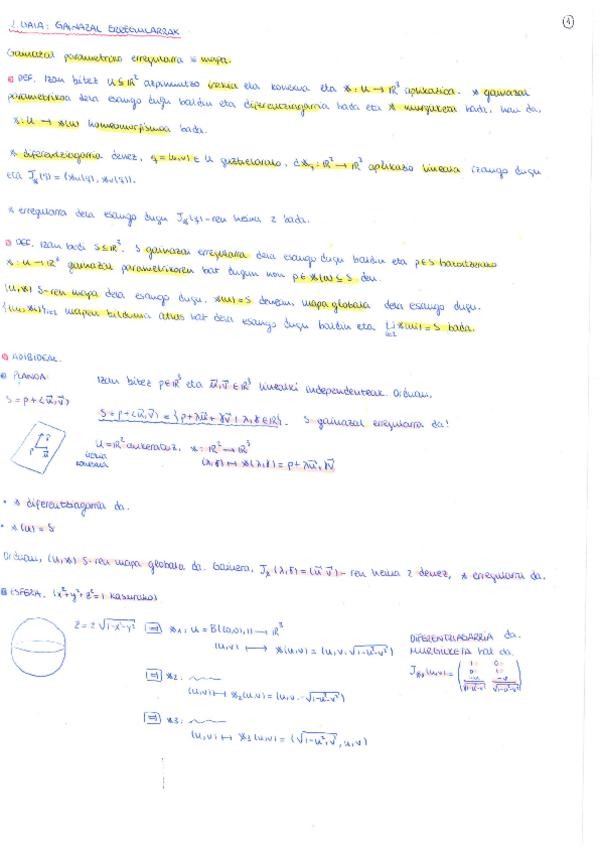 1. GAIA: GAINAZAL ERREGULARRAK
1
Gainazal parametriko erregularra = mapa.
DEF. Izan bitez U ⊆ ℝ² azpimultzo irekia eta konexua eta x: U → ℝ³ aplikazioa. x gainazal
parametrikoa dela esango dugu baldin eta diferentziagarria bada eta x murgilketa bada, hau da,
x: U → x(U) homeomorfismoa bada.
x diferentziagarria denez, q = (u,v) ∈ U guztietarako, dx_q: ℝ² → ℝ³ aplikazio lineala izango dugu
eta J_x(q) = (x_u(q), x_v(q)).
x erregularra dela esango dugu J_x(q)-ren heina 2 bada.
DEF. Izan bedi S ⊆ ℝ³. S gainazal erregularra dela esango dugu baldin eta p ∈ S bakoitzerako
x: U → ℝ³ gainazal parametrikoren bat dugun non p ∈ x(U) ⊆ S den.
(U,x) S-ren mapa dela esango dugu. x(U) = S denean, mapa globala dela esango dugu.
{(Ui, xi)}i∈I mapen bilduma atlas bat dela esango dugu baldin eta ∪ xi(Ui) = S bada.
i∈I
ADIBIDEAK.
PLANOA:
Izan bitez p ∈ ℝ³ eta u, v ∈ ℝ³ linealki independenteak. Orduan,
S = p + <u, v>
S = p + <u, v> = {p + λu + γv | λ, γ ∈ ℝ}. S gainazal erregularra da!
p u v
U = ℝ² aukeratuz, x: ℝ² → ℝ³
irekia
konexua
(λ, γ) ↦ x(λ, γ) = p + λu, γv
• x diferentziagarria da.
• x(U) = S
Orduan, (U,x) S-ren mapa globala da. Gainera, J_x(λ, γ) = (u v)-ren heina 2 denez, x erregularra da.
ESFERA. (x²+y²+z²=1 kasurako)
z = ± √1-x²-y²
⇒ x1: U = B((0,0),1) → ℝ³
(u,v) ↦ x(u,v) = (u, v, √1-u²-v²)
DIFERENTZIAGARRIA da.
MURGILKETA bat da.
J_x1(u,v) = ( 1 0
0 1
-u/√1-u²-v² -v/√1-u²-v² )
⇒ x2:
(u,v) ↦ x2(u,v) = (u, v, -√1-u²-v²)
⇒ x3:
(u,v) ↦ x3(u,v) = (√1-u²-v², u, v)